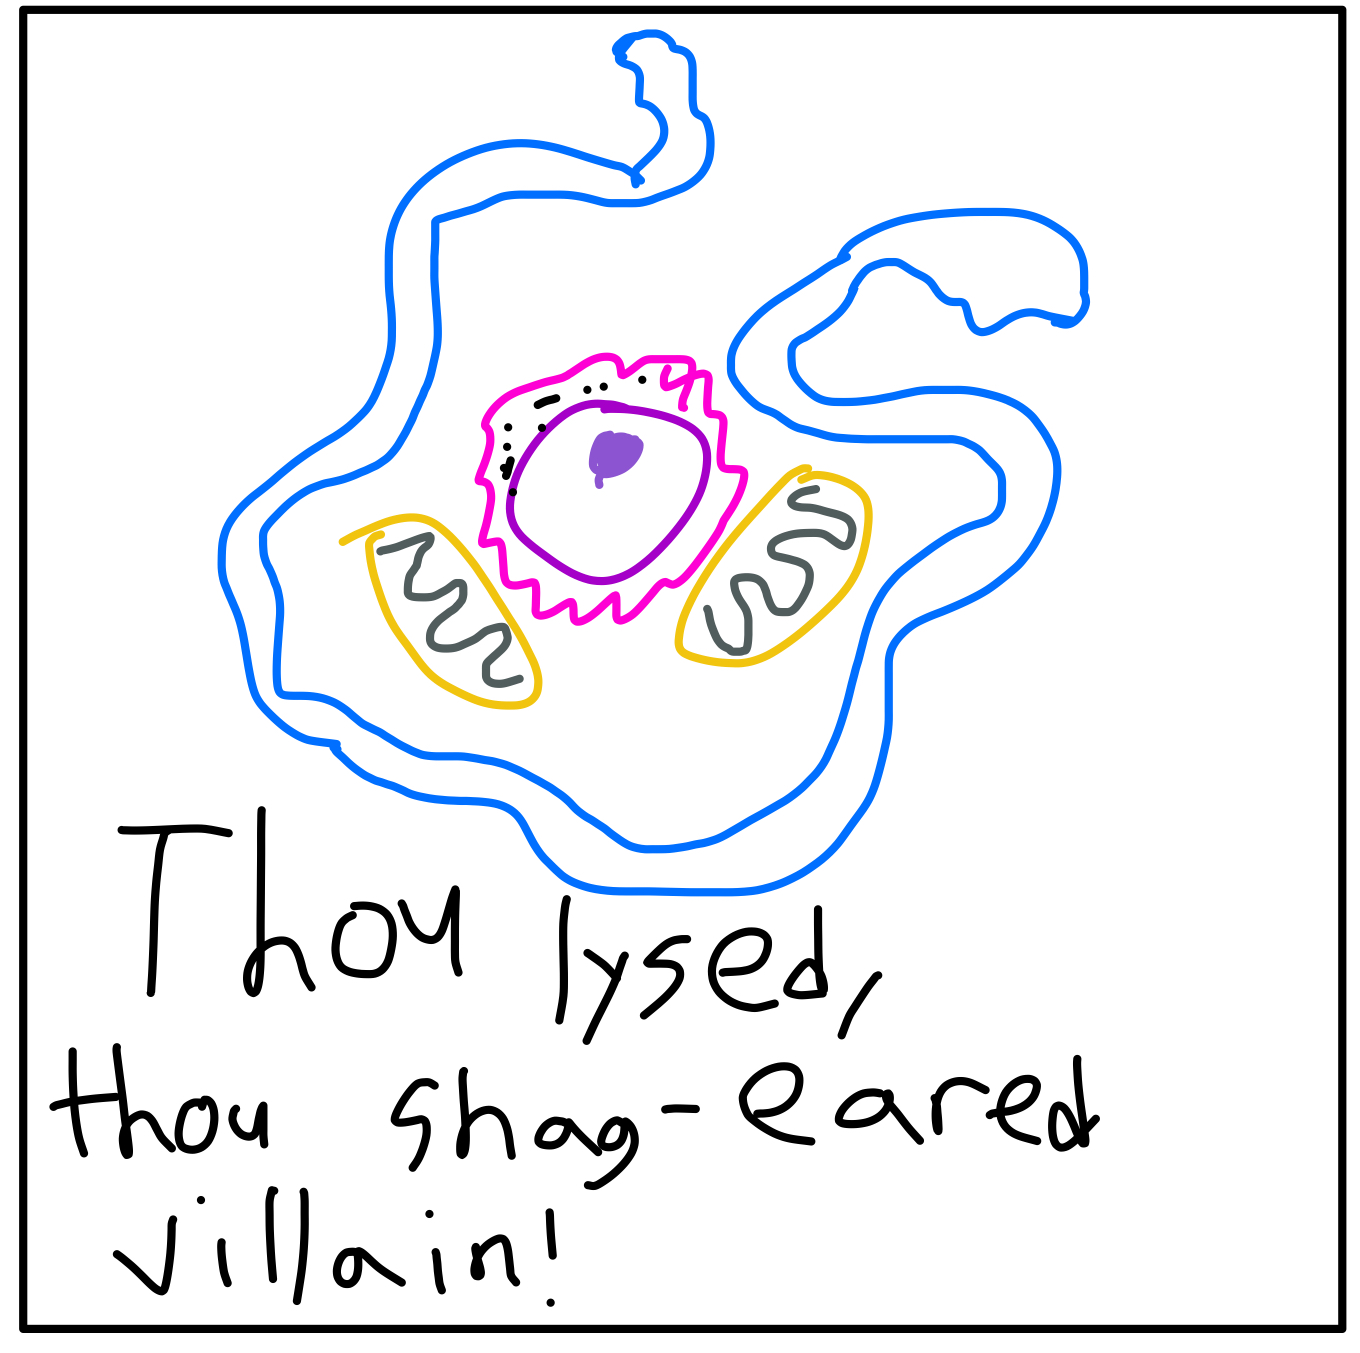 Thou lysed,
thou shag-eared
villain!